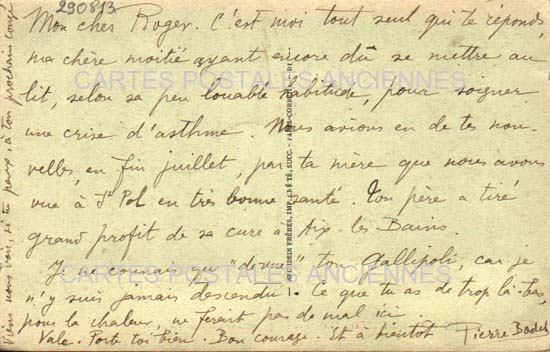 290813
Mon cher Roger. C'est moi tout seul qui te réponds,
ma chère moitié ayant encore dû se mettre au
lit, selon sa peu louable habitude, pour soigner
une crise d'asthme. Nous avions eu de tes nou-
velles, en fin juillet, par ta mère que nous avons
vue à St Pol en très bonne santé. Ton père a tiré
grand profit de sa cure à Aix-les-Bains.
Je ne connais qu' "de vue" ton Gallipoli, car je
n'y suis jamais descendu. Ce que tu as de trop là-bas,
pour la chaleur, ne ferait pas de mal ici.
Vale. Porte toi bien. Bon courage. Et à bientôt Pierre
Viens nous voir, si tu peux, à ton prochain congé
NEURDEIN FRÈRES, IMP. CRÉTÉ, SUCC. - PARIS-CORBEIL
CARTES POSTALES ANCIENNES
CARTES POSTALES ANCIENNES